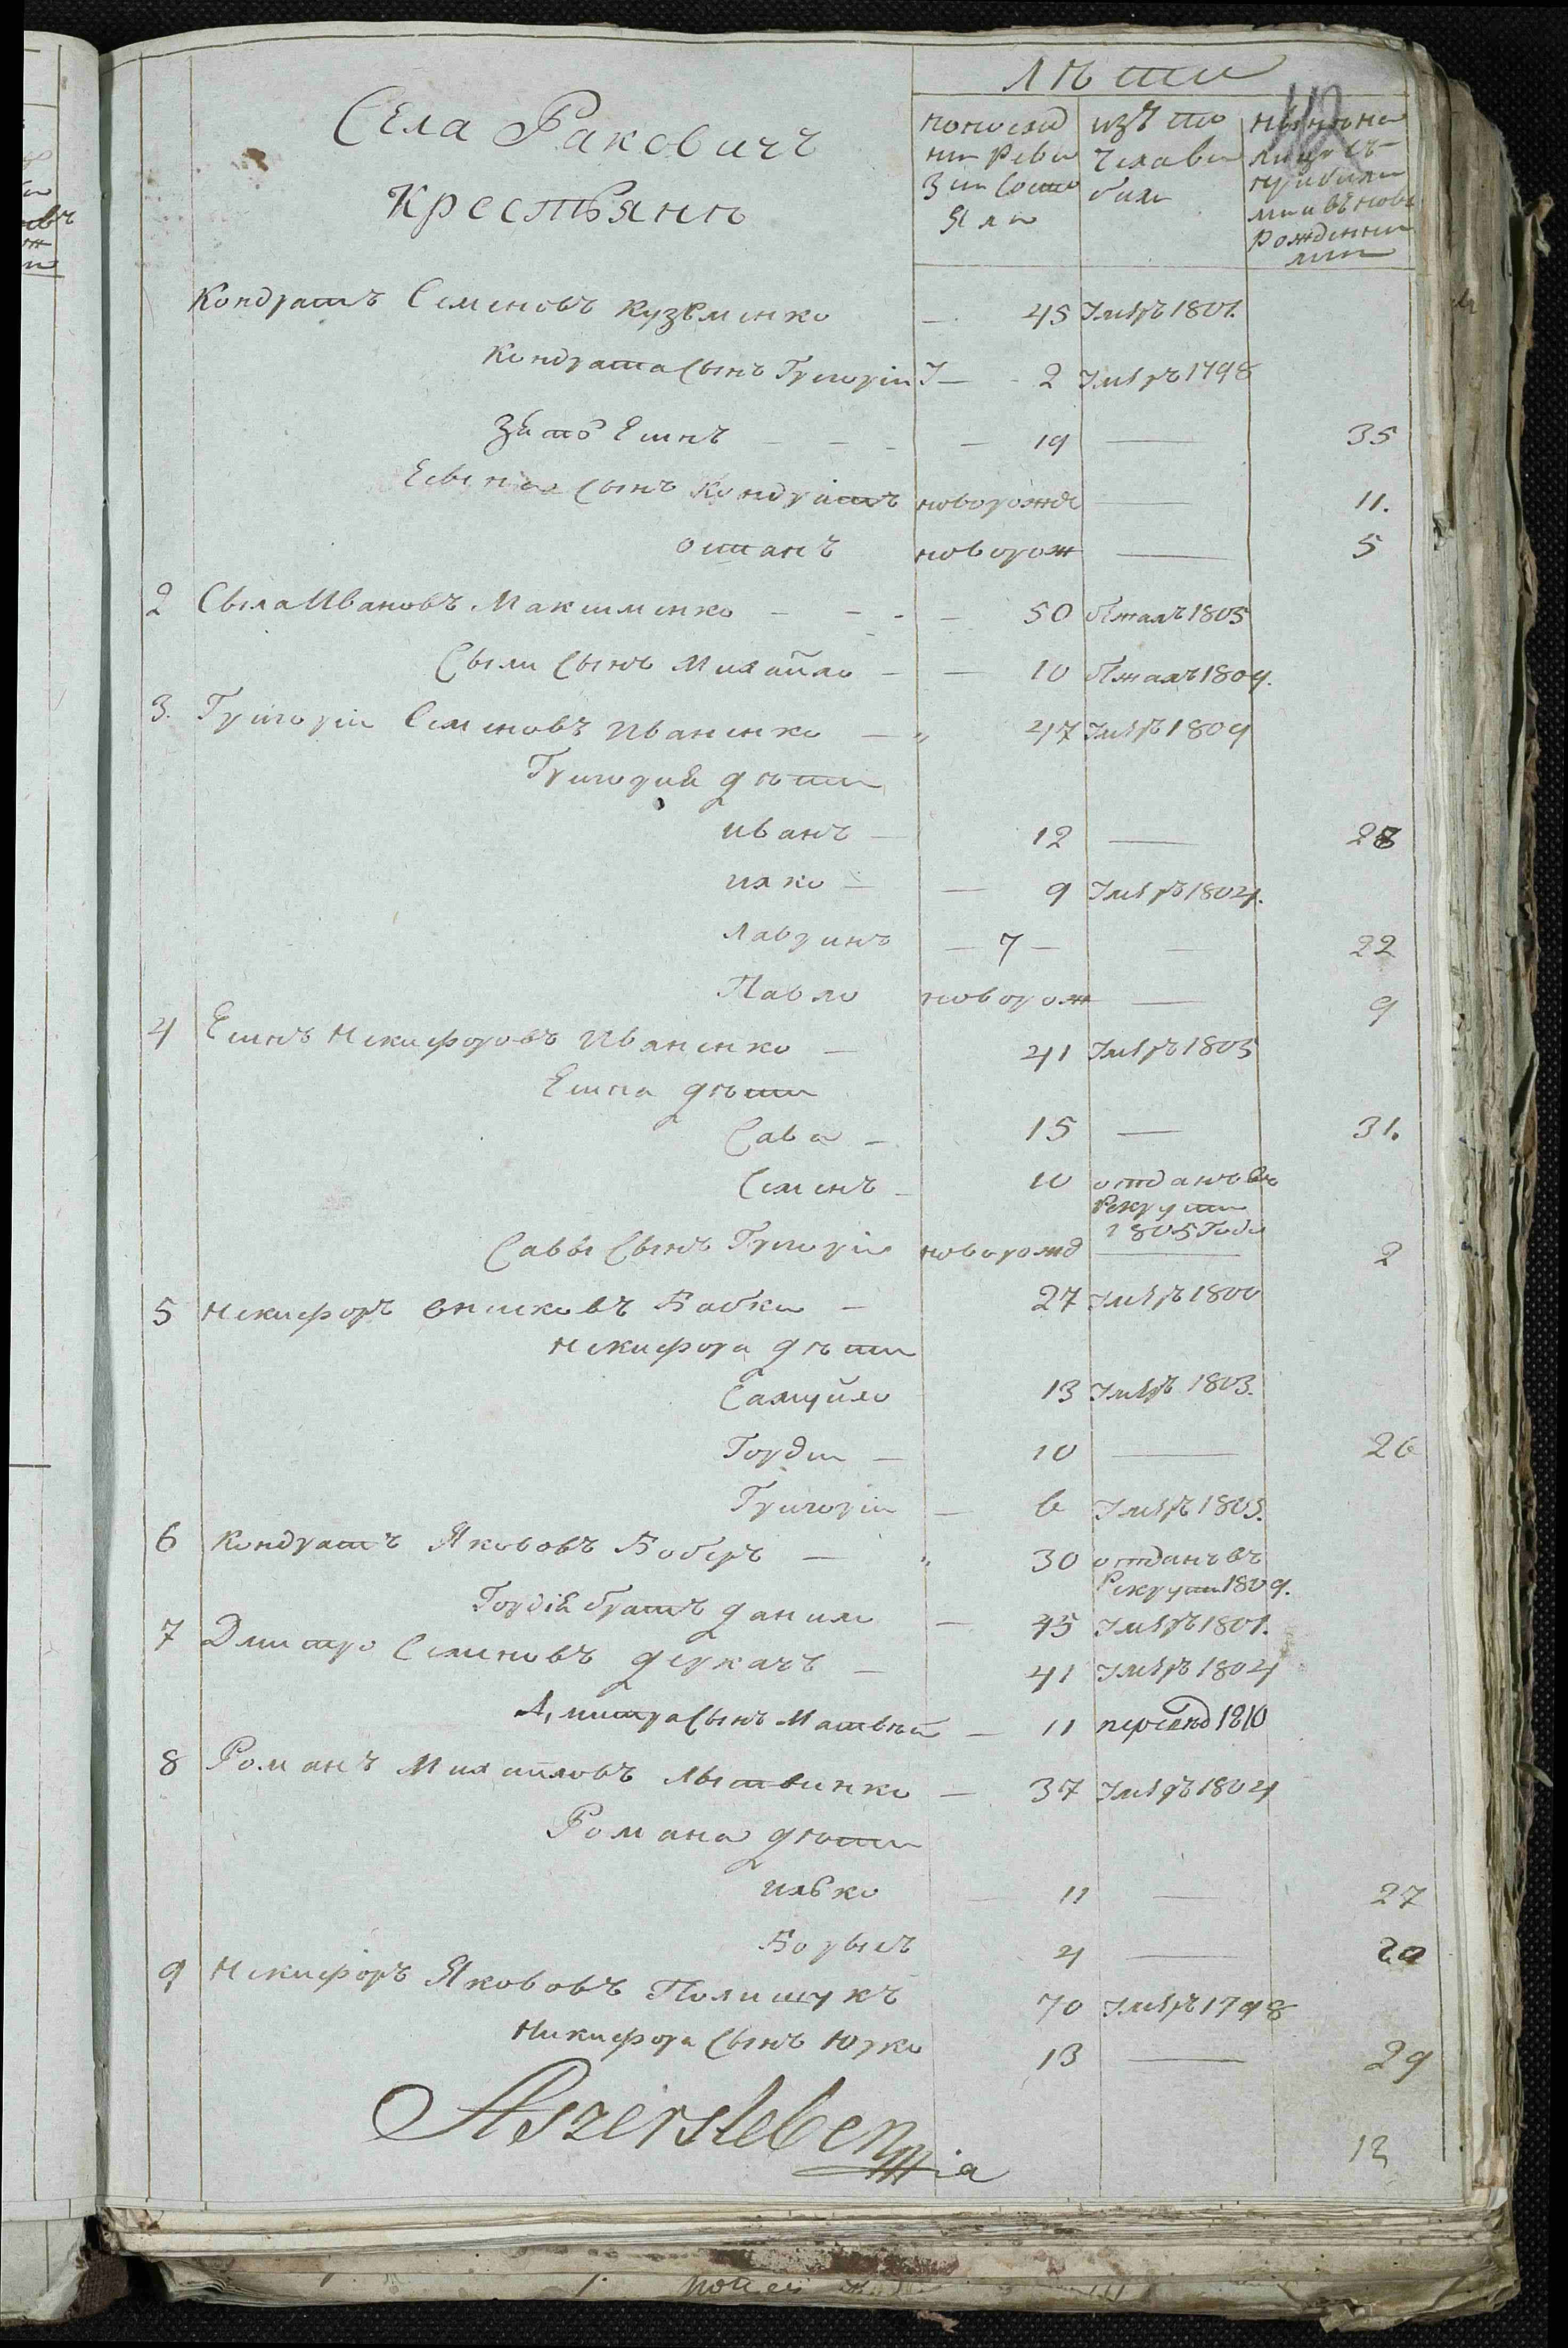 Лѣти
Села Раковичъ
Крестьянѣ
попослѣд
ней реви
зіи состо
яло
изъ то
числа ви
было
нынѣ на
лицо съ
прибылы
ми и вновь
рожденны
ми
Кондратъ Семеновъ Кузьменко — 45 Умеръ 1801.
Кондрата сынъ Григорій — 2 Умеръ 1798
Зять Есипъ — 19 — 35
Есыпа сынъ Кондратъ новорожд — 11.
Остапъ новорож — 5
2 Сыла Ивановъ Максименко — 50 бѣжалъ 1805
Сылы сынъ Михайло — 10 бѣжалъ 1809.
3. Григорій Семеновъ Иваненко — 47 Умеръ 1809
Григорія дѣти
Иванъ — 12 — 28
Илко — 9 Умеръ 1804.
Лавринъ — 7 — 22
Павло новорож — 9
4 Есипъ Никифоровъ Иваненко — 41 Умеръ 1805
Есипа дѣти
Сава — 15 — 31.
Семенъ — 10 отданъ въ
рекруты
1805 года
Савы сынъ Григорій новорожд — 2
5 Никифоръ Бабко — 27 Умеръ 1800
Никифора дѣти
Самуйло 13 Умеръ 1803.
Гордій — 10 — 26
Григорій — 6 Умеръ 1805.
6 Кондратъ Яковъ Боберъ — 30 отданъ въ
рекруты 1809.
Гордій братъ Данило — 45 Умеръ 1801.
7 Дмитро Семеновъ Деркачъ — 41 Умеръ 1804
Дмитра сынъ Матвѣй — 11 перевед 1810
8 Романъ Михайловъ Лытвинко — 37 Умеръ 1804
Романа дѣти
Илько 11 — 27
Борысъ 4 — 20
9 Никифоръ Яковъ Полищукъ 70 Умеръ 1798
Никифора сынъ Юрко 13 — 29
Aszersleben
12